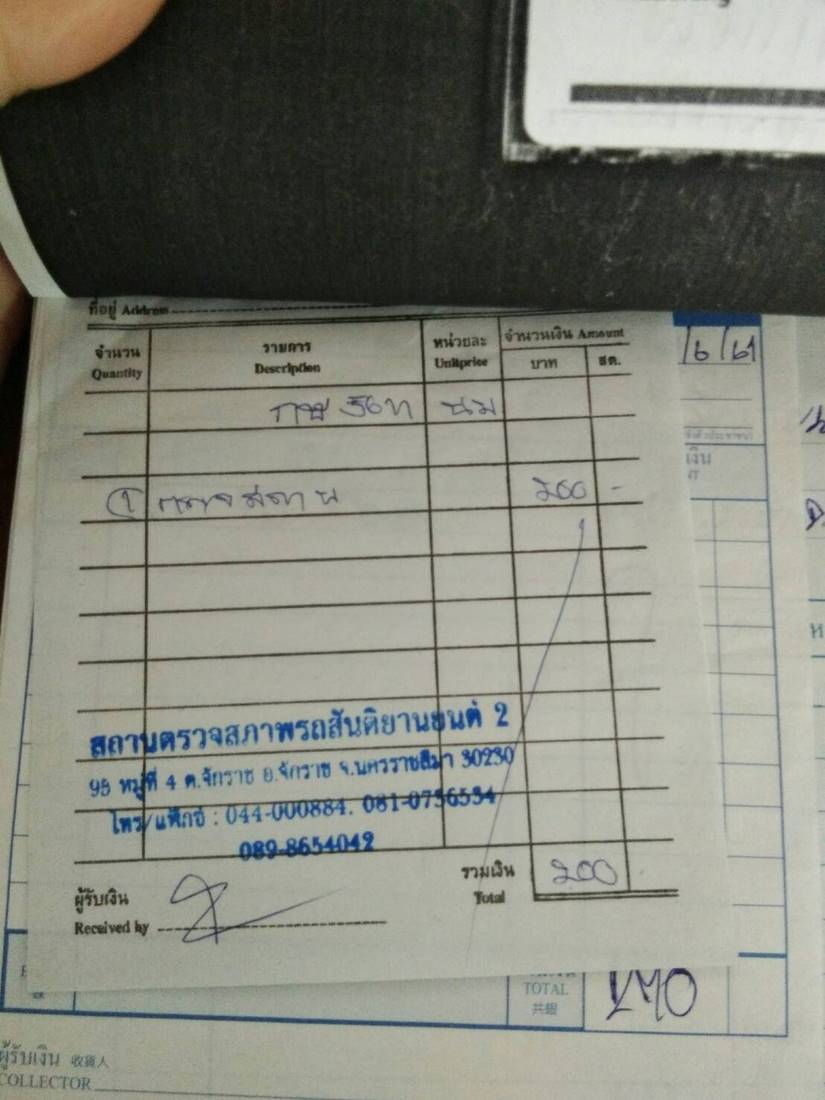 ที่อยู่ Address
จำนวน รายการ หน่วยละ จำนวนเงิน Amount
Quantity Description Unitprice บาท สต.
/6/61
เงิน
① 200 -
สถานตรวจสภาพรถสันติยานยนต์ 2
99 หมู่ที่ 4 ต.จักราช อ.จักราช จ.นครราชสีมา 30230
โทร/แฟ็กซ์ : 044-000884. 081-0756534
089-8654042
รวมเงิน 200
Total
ผู้รับเงิน
Received by
TOTAL
共銀
ผู้รับเงิน 收貨人
COLLECTOR